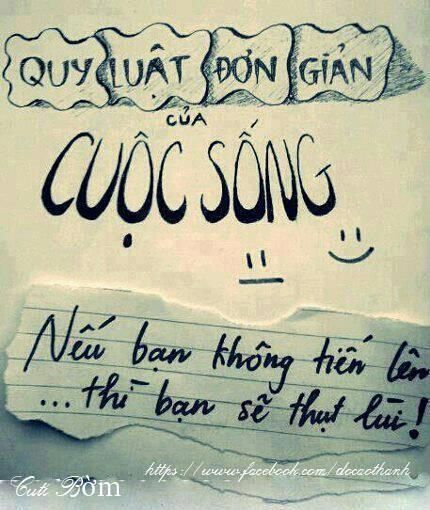 QUY LUẬT ĐƠN GIẢN
CỦA
CUỘC SỐNG
Nếu bạn không tiến lên
... thì bạn sẽ thụt lùi!
https://www.facebook.com/docaothanh
Cuti Bờm